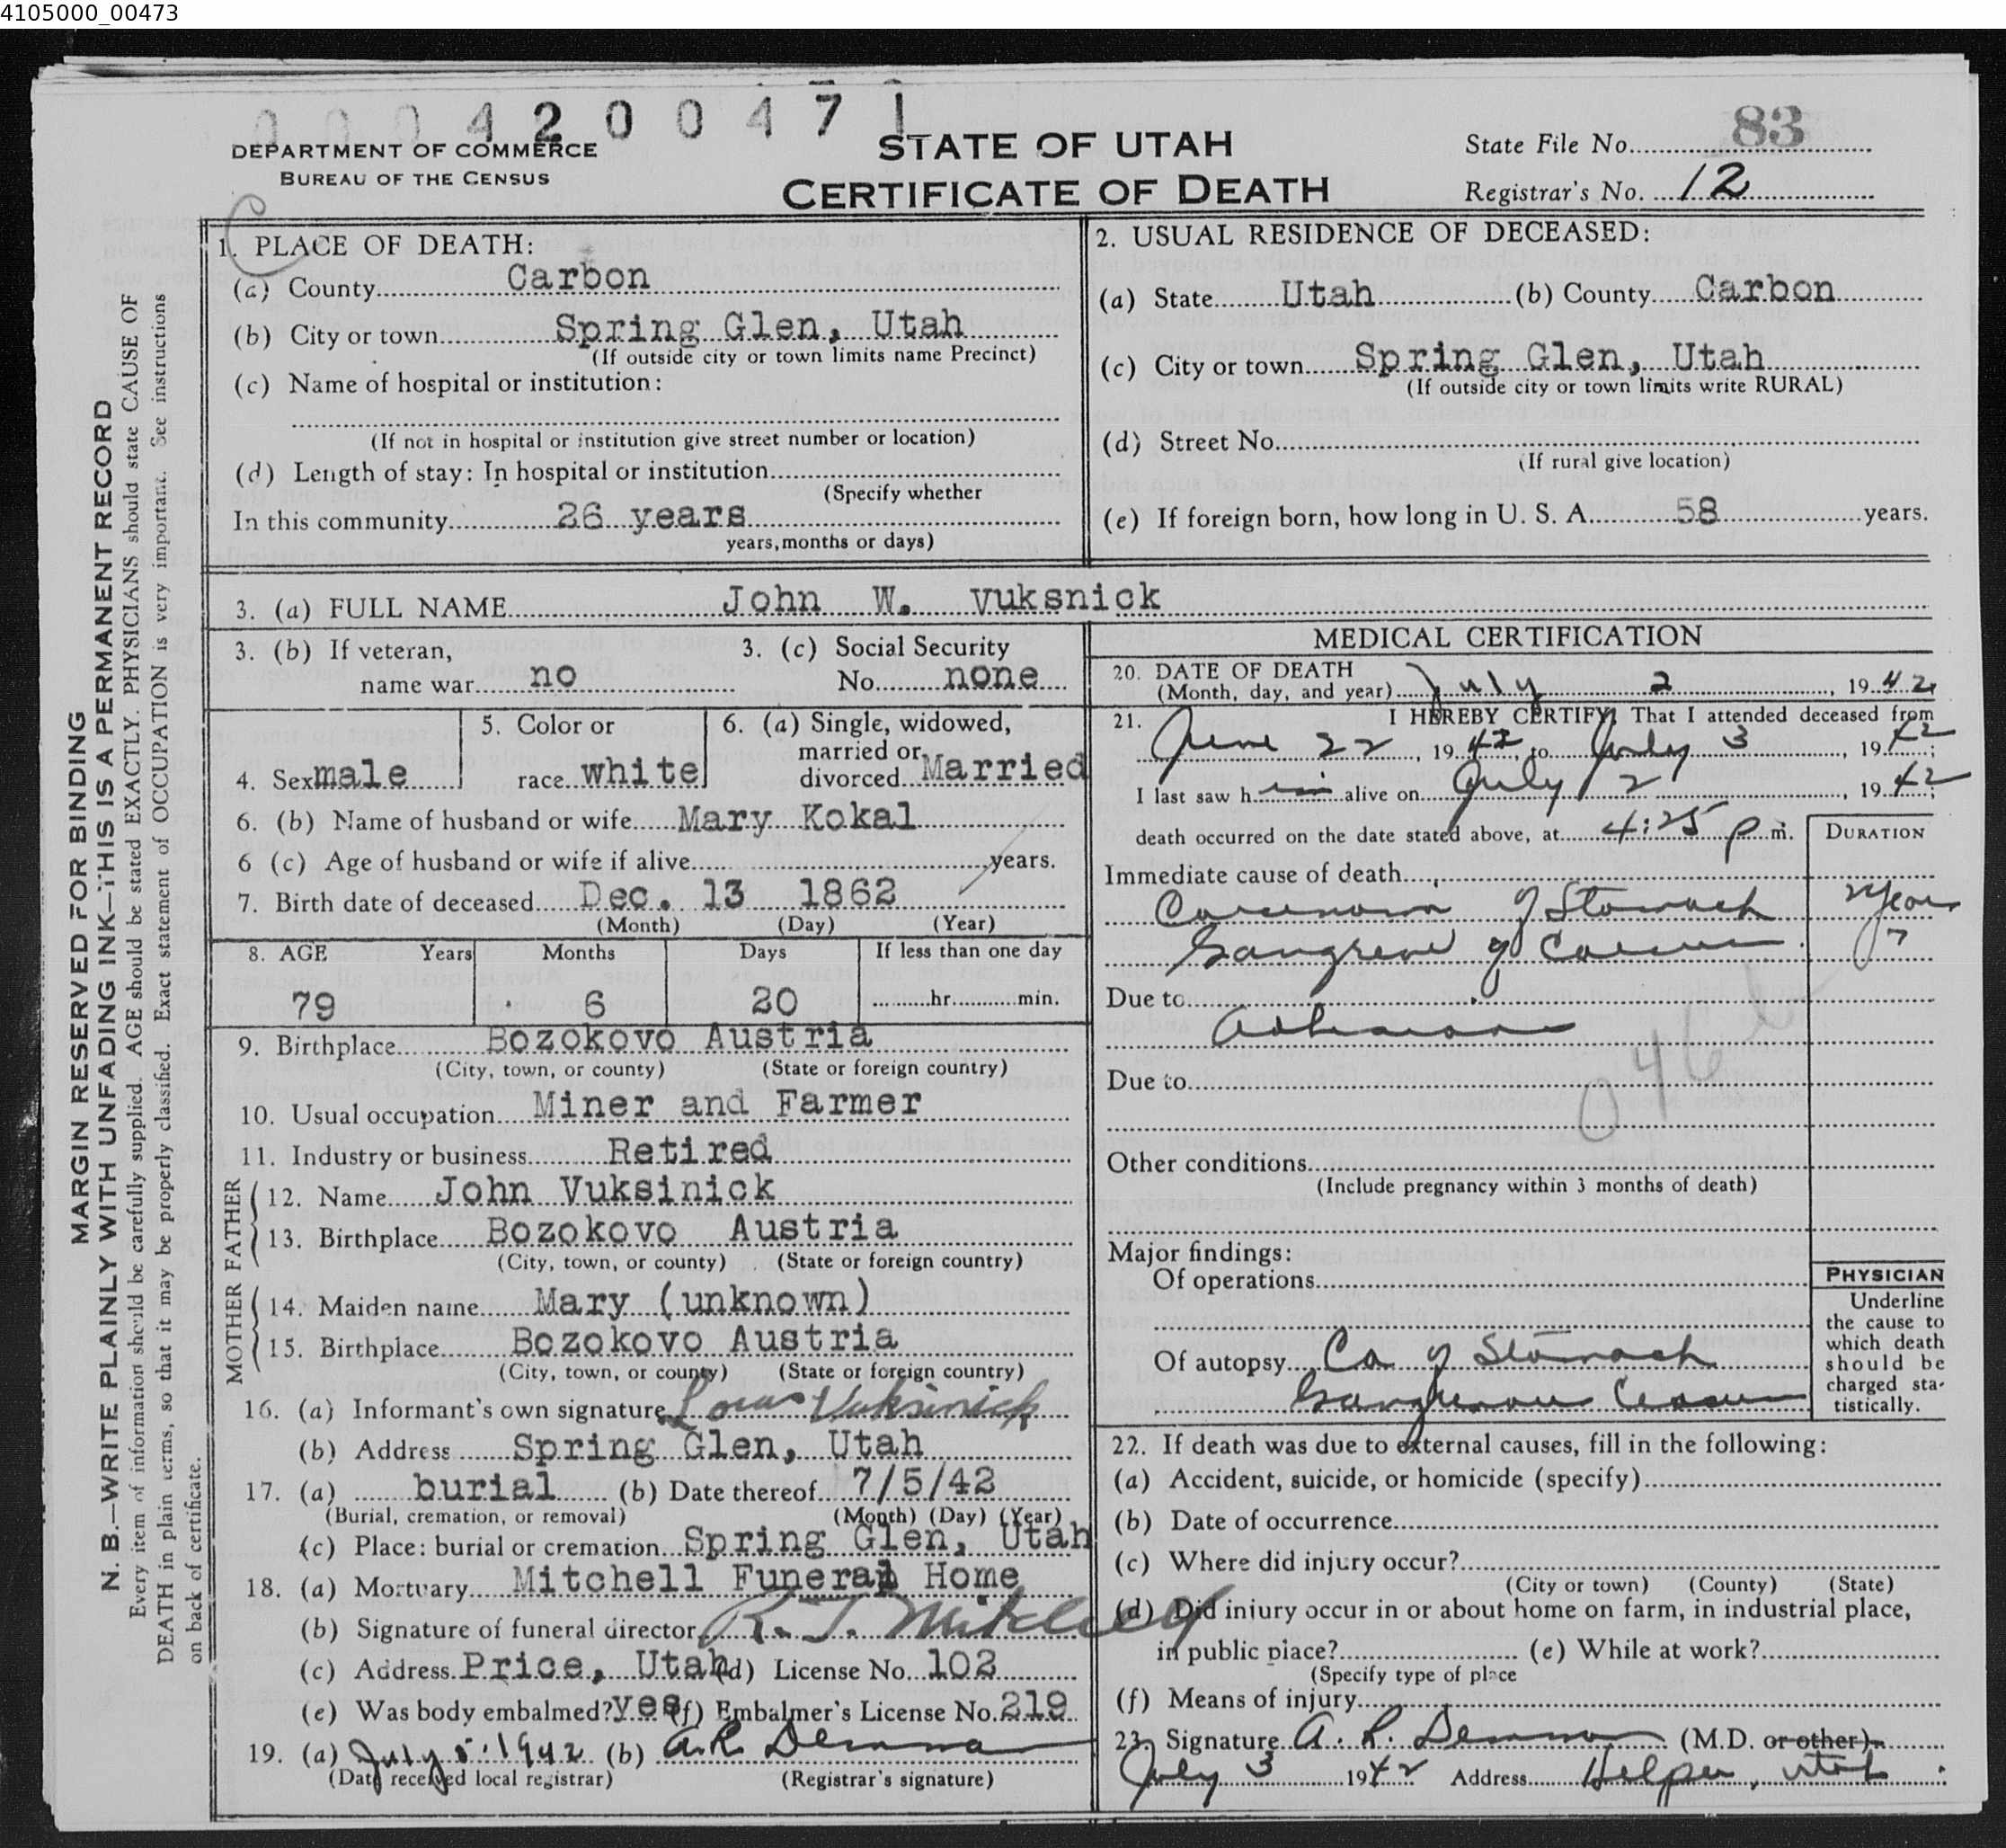 4105000_00473
0004200471
DEPARTMENT OF COMMERCE
BUREAU OF THE CENSUS
STATE OF UTAH
CERTIFICATE OF DEATH
State File No. 83
Registrar's No. 12
MARGIN RESERVED FOR BINDING
N. B.—WRITE PLAINLY WITH UNFADING INK—THIS IS A PERMANENT RECORD
Every item of information should be carefully supplied. AGE should be stated EXACTLY. PHYSICIANS should state CAUSE OF
DEATH in plain terms, so that it may be properly classified. Exact statement of OCCUPATION is very important. See instructions
on back of certificate.
1. PLACE OF DEATH:
(a) County Carbon
(b) City or town Spring Glen, Utah
(If outside city or town limits name Precinct)
(c) Name of hospital or institution:
(If not in hospital or institution give street number or location)
(d) Length of stay: In hospital or institution
(Specify whether
In this community 26 years
years, months or days)
2. USUAL RESIDENCE OF DECEASED:
(a) State Utah (b) County Carbon
(c) City or town Spring Glen, Utah
(If outside city or town limits write RURAL)
(d) Street No.
(If rural give location)
(e) If foreign born, how long in U. S. A. 58 years.
3. (a) FULL NAME John W. Vuksnick
3. (b) If veteran, 3. (c) Social Security
name war no No. none
4. Sex male
5. Color or
race white
6. (a) Single, widowed,
married or
divorced Married
6. (b) Name of husband or wife Mary Kokal
6 (c) Age of husband or wife if alive years.
7. Birth date of deceased Dec. 13 1862
(Month) (Day) (Year)
8. AGE Years Months Days If less than one day
79 6 20 hr. min.
9. Birthplace Bozokovo Austria
(City, town, or county) (State or foreign country)
10. Usual occupation Miner and Farmer
11. Industry or business Retired
FATHER
12. Name John Vuksinick
13. Birthplace Bozokovo Austria
(City, town, or county) (State or foreign country)
MOTHER
14. Maiden name Mary (unknown)
15. Birthplace Bozokovo Austria
(City, town, or county) (State or foreign country)
16. (a) Informant's own signature Louis Vuksinick
(b) Address Spring Glen, Utah
17. (a) burial (b) Date thereof 7/5/42
(Burial, cremation, or removal) (Month) (Day) (Year)
(c) Place: burial or cremation Spring Glen, Utah
18. (a) Mortuary Mitchell Funeral Home
(b) Signature of funeral director R. T. Mitchell
(c) Address Price, Utah (d) License No. 102
(e) Was body embalmed? yes (f) Embalmer's License No. 219
19. (a) July 5. 1942 (b) A.R. Demman
(Date received local registrar) (Registrar's signature)
MEDICAL CERTIFICATION
20. DATE OF DEATH
(Month, day, and year) July 2, 1942
21. I HEREBY CERTIFY, That I attended deceased from
June 22, 1942, to July 3, 1942;
I last saw him alive on July 2, 1942;
death occurred on the date stated above, at 4:25 p m.
DURATION
Immediate cause of death
Carcinoma of Stomach 2 years
Gangrene of Caecum ?
Due to
Adhesions
Due to
046
Other conditions
(Include pregnancy within 3 months of death)
Major findings:
Of operations
Of autopsy Ca of Stomach
Gangrenous Cecum
PHYSICIAN
Underline
the cause to
which death
should be
charged sta-
tistically.
22. If death was due to external causes, fill in the following:
(a) Accident, suicide, or homicide (specify)
(b) Date of occurrence
(c) Where did injury occur?
(City or town) (County) (State)
(d) Did injury occur in or about home on farm, in industrial place,
in public place? (e) While at work?
(Specify type of place
(f) Means of injury
23. Signature A. R. Demman (M.D. or other)
July 3 1942 Address Helper, Utah